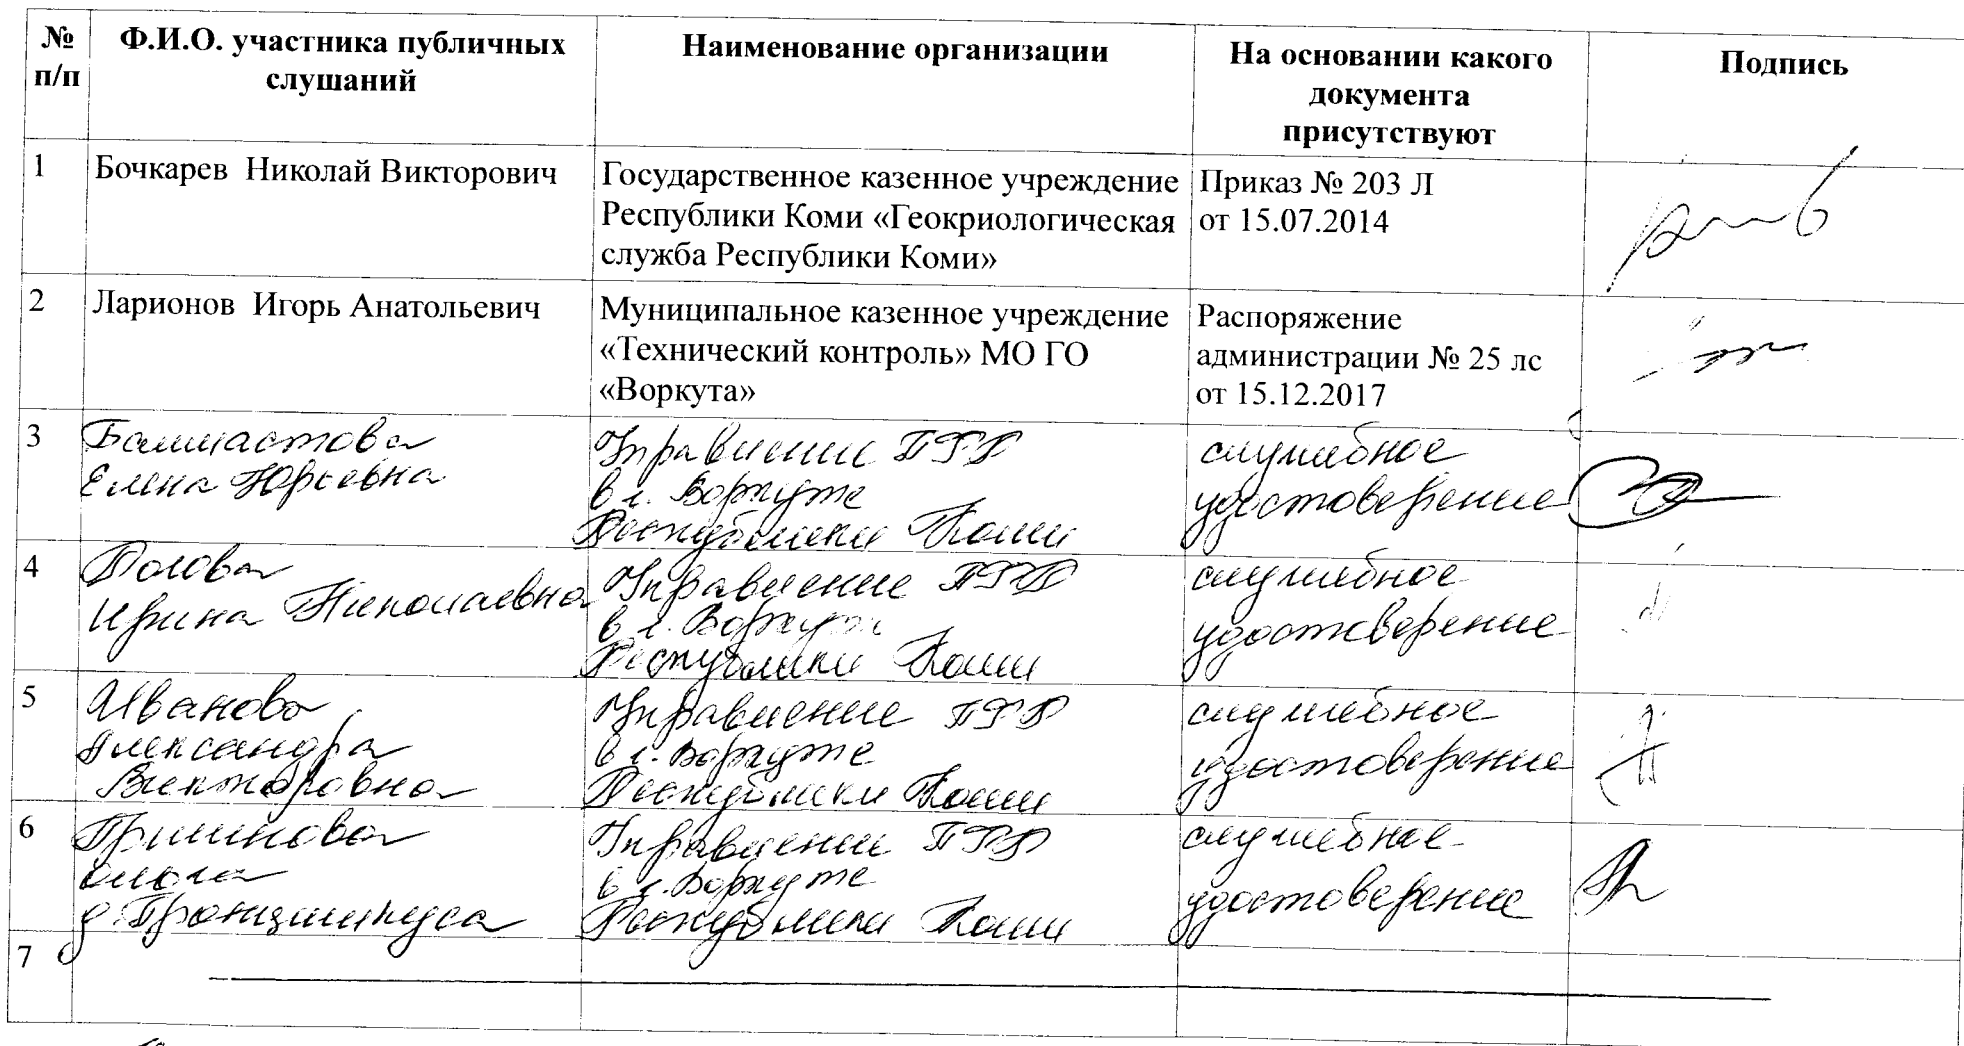 № п/п
Ф.И.О. участника публичных
слушаний
Наименование организации
На основании какого
документа
присутствуют
Подпись
1
Бочкарев Николай Викторович
Государственное казенное учреждение
Республики Коми «Геокриологическая
служба Республики Коми»
Приказ № 203 Л
от 15.07.2014
2
Ларионов Игорь Анатольевич
Муниципальное казенное учреждение
«Технический контроль» МО ГО
«Воркута»
Распоряжение
администрации № 25 лс
от 15.12.2017
3
Елена Юрьевна
Управление ПФР
в г. Воркуте
Республики Коми
служебное
удостоверение
4
Ирина Николаевна
Управление ПФР
в г. Воркуте
Республики Коми
служебное
удостоверение
5
Иванова
Александра
Викторовна
Управление ПФР
в г. Воркуте
Республики Коми
служебное
удостоверение
6
Управление ПФР
в г. Воркуте
Республики Коми
служебное
удостоверение
7